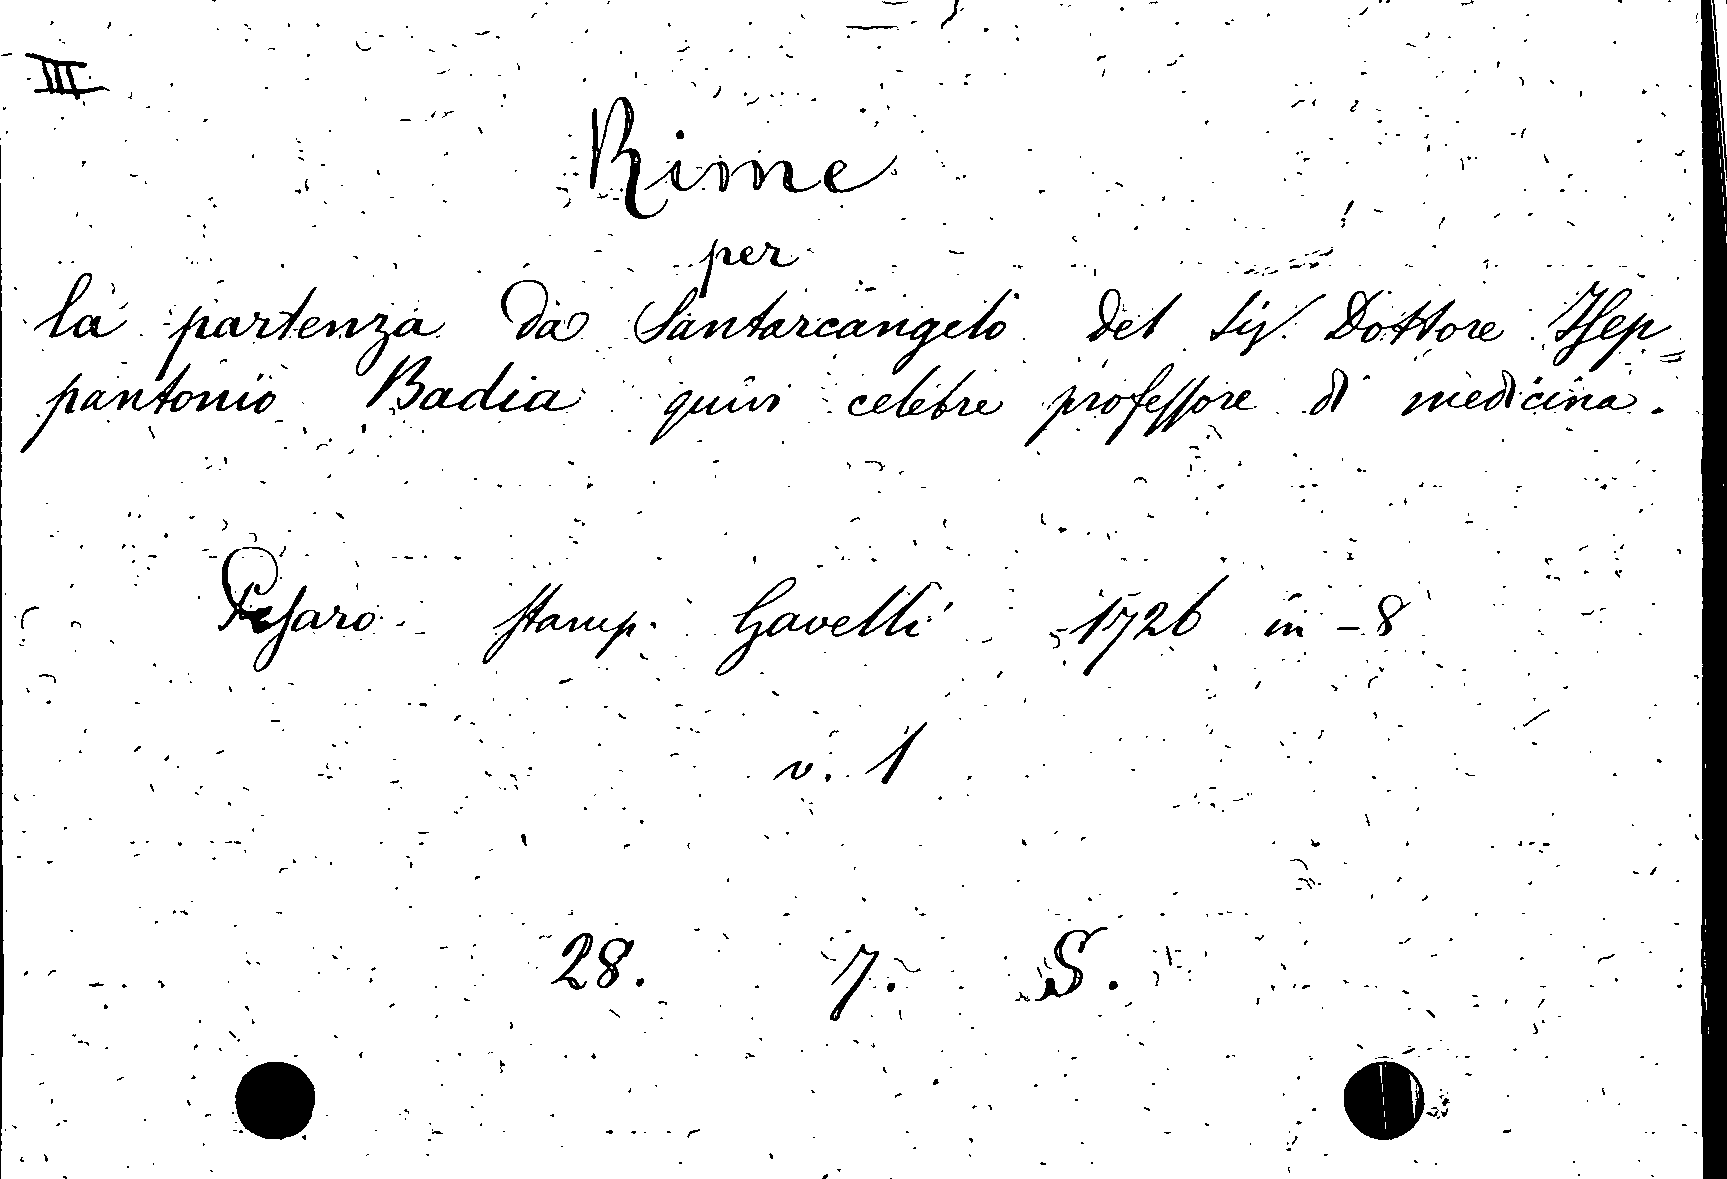 III
Rime
per
la partenza da Santarcangelo del Sig. Dottore
pantonio Badia quivi celebre professore di medicina.
Pesaro stamp. Gavelli 1726 in - 8
v. 1
28. 7. S.